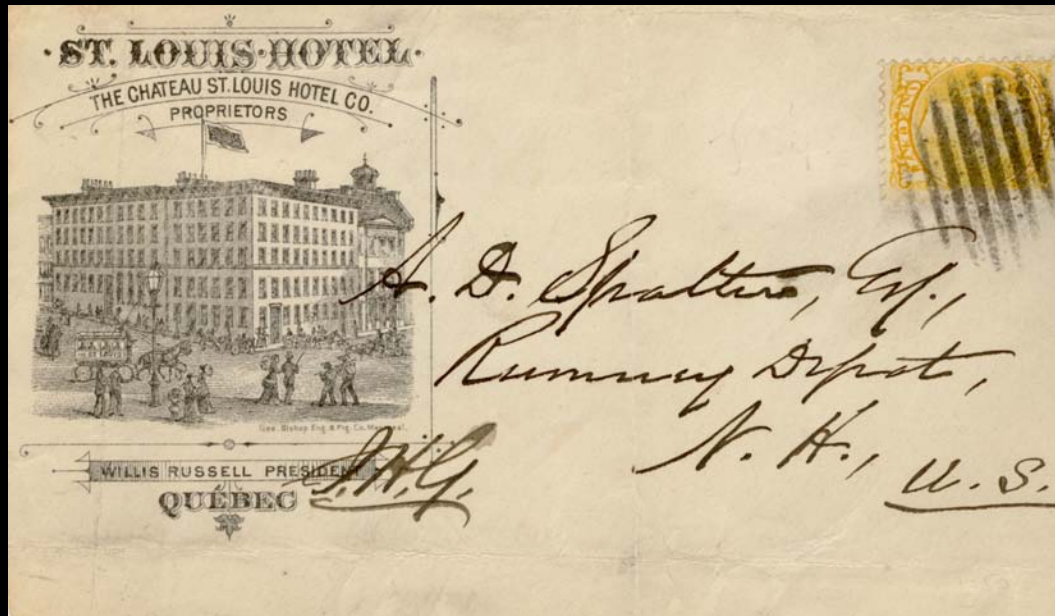 ST. LOUIS HOTEL
THE CHATEAU ST. LOUIS HOTEL CO.
PROPRIETORS
ST LOUIS
Geo. Bishop Eng. & Ptg. Co. Montreal.
WILLIS RUSSELL PRESIDENT
QUÉBEC
ONE CENT
A. D. Esq.,
Rumney Depot,
N. H.,
U. S.